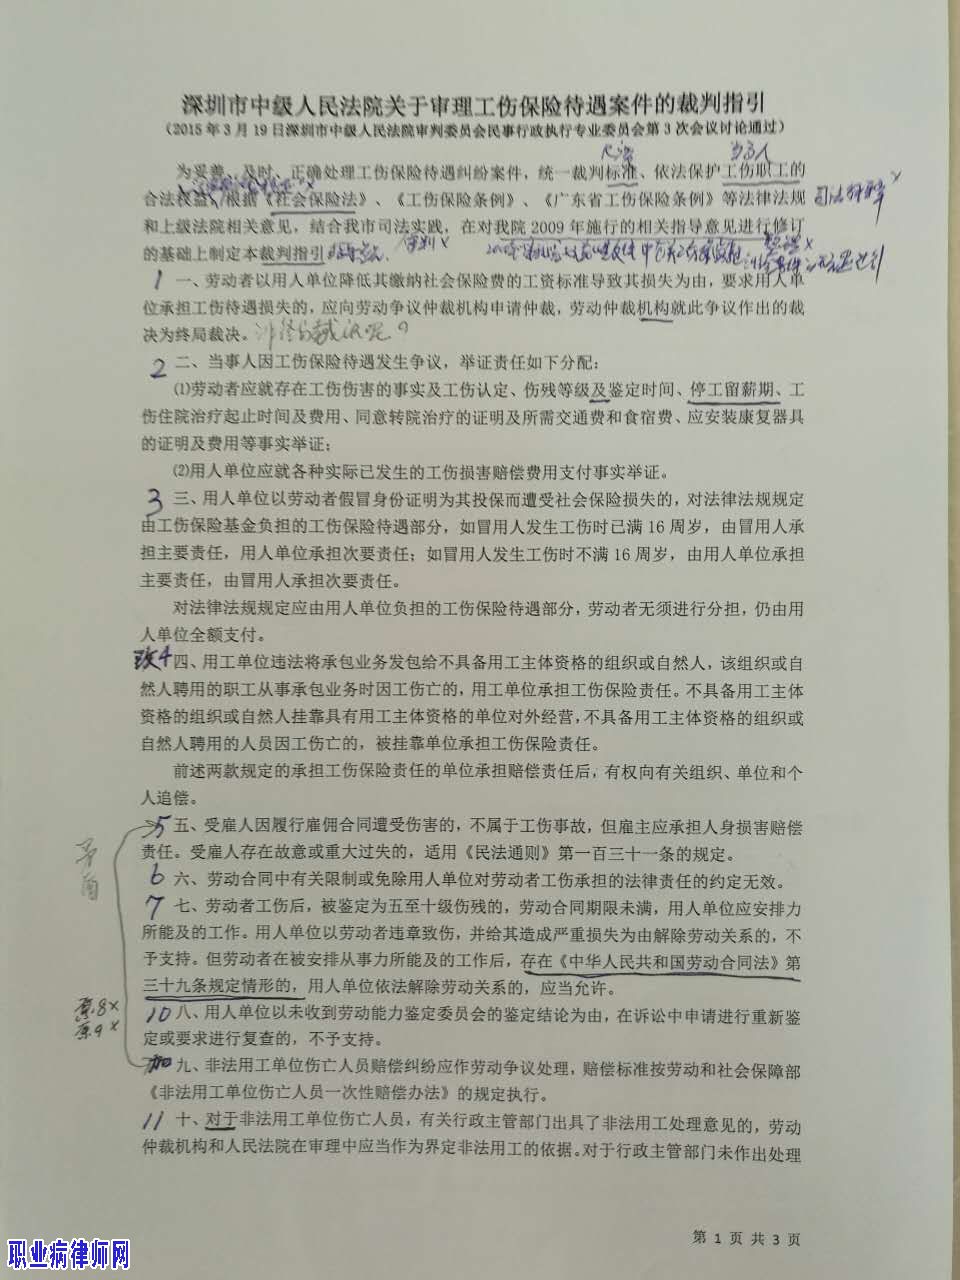 深圳市中级人民法院关于审理工伤保险待遇案件的裁判指引
（2015年3月19日深圳市中级人民法院审判委员会民事行政执行专业委员会第3次会议讨论通过）
当事人
为妥善、及时、正确处理工伤保险待遇纠纷案件，统一裁判标准、依法保护工伤职工的
合法权益，根据《社会保险法》、《工伤保险条例》、《广东省工伤保险条例》等法律法规
和上级法院相关意见，结合我市司法实践，在对我院2009年施行的相关指导意见进行修订
的基础上制定本裁判指引
1 一、劳动者以用人单位降低其缴纳社会保险费的工资标准导致其损失为由，要求用人单
位承担工伤待遇损失的，应向劳动争议仲裁机构申请仲裁，劳动仲裁机构就此争议作出的裁
决为终局裁决。
2 二、当事人因工伤保险待遇发生争议，举证责任如下分配：
⑴劳动者应就存在工伤伤害的事实及工伤认定、伤残等级及鉴定时间、停工留薪期、工
伤住院治疗起止时间及费用、同意转院治疗的证明及所需交通费和食宿费、应安装康复器具
的证明及费用等事实举证；
⑵用人单位应就各种实际已发生的工伤损害赔偿费用支付事实举证。
3 三、用人单位以劳动者假冒身份证明为其投保而遭受社会保险损失的，对法律法规规定
由工伤保险基金负担的工伤保险待遇部分，如冒用人发生工伤时已满16周岁，由冒用人承
担主要责任，用人单位承担次要责任；如冒用人发生工伤时不满16周岁，由用人单位承担
主要责任，由冒用人承担次要责任。
对法律法规规定应由用人单位负担的工伤保险待遇部分，劳动者无须进行分担，仍由用
人单位全额支付。
改4 四、用工单位违法将承包业务发包给不具备用工主体资格的组织或自然人，该组织或自
然人聘用的职工从事承包业务时因工伤亡的，用工单位承担工伤保险责任。不具备用工主体
资格的组织或自然人挂靠具有用工主体资格的单位对外经营，不具备用工主体资格的组织或
自然人聘用的人员因工伤亡的，被挂靠单位承担工伤保险责任。
前述两款规定的承担工伤保险责任的单位承担赔偿责任后，有权向有关组织、单位和个
人追偿。
5 五、受雇人因履行雇佣合同遭受伤害的，不属于工伤事故，但雇主应承担人身损害赔偿
责任。受雇人存在故意或重大过失的，适用《民法通则》第一百三十一条的规定。
矛盾
6 六、劳动合同中有关限制或免除用人单位对劳动者工伤承担的法律责任的约定无效。
7 七、劳动者工伤后，被鉴定为五至十级伤残的，劳动合同期限未满，用人单位应安排力
所能及的工作。用人单位以劳动者违章致伤，并给其造成严重损失为由解除劳动关系的，不
予支持。但劳动者在被安排从事力所能及的工作后，存在《中华人民共和国劳动合同法》第
三十九条规定情形的，用人单位依法解除劳动关系的，应当允许。
原8×
原9×
10 八、用人单位以未收到劳动能力鉴定委员会的鉴定结论为由，在诉讼中申请进行重新鉴
定或要求进行复查的，不予支持。
加 九、非法用工单位伤亡人员赔偿纠纷应作劳动争议处理，赔偿标准按劳动和社会保障部
《非法用工单位伤亡人员一次性赔偿办法》的规定执行。
11 十、对于非法用工单位伤亡人员，有关行政主管部门出具了非法用工处理意见的，劳动
仲裁机构和人民法院在审理中应当作为界定非法用工的依据。对于行政主管部门未作出处理
第 1 页 共 3 页
职业病律师网